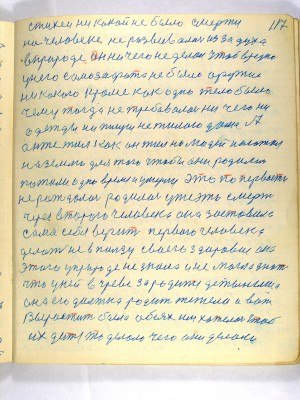 117
стихеи никакой не было смерти
на человека не развивалась из за духа
в природе он ничего не делал чтоб вредно
у него самозащита не было оружие
никакого кроме как одно тело было
чему тогда не требовалось ни чего ни
одежды ни пищи не жилого дома А
жил на
на землю для того чтобы они родились
пожили одно время и умерли Это по первости
не рождалось родилась уже эта смерть
через второго человека она заставила
сама себя верить первого человека
делать не в пользу своего здоровия она
этого у природе не знала и не могла знать
что у ней в чреве зародится детиньиша
она его должна родить тяжело и вот
Вырастить было обеих им хотелось чтоб
их дети то делали чего они делали